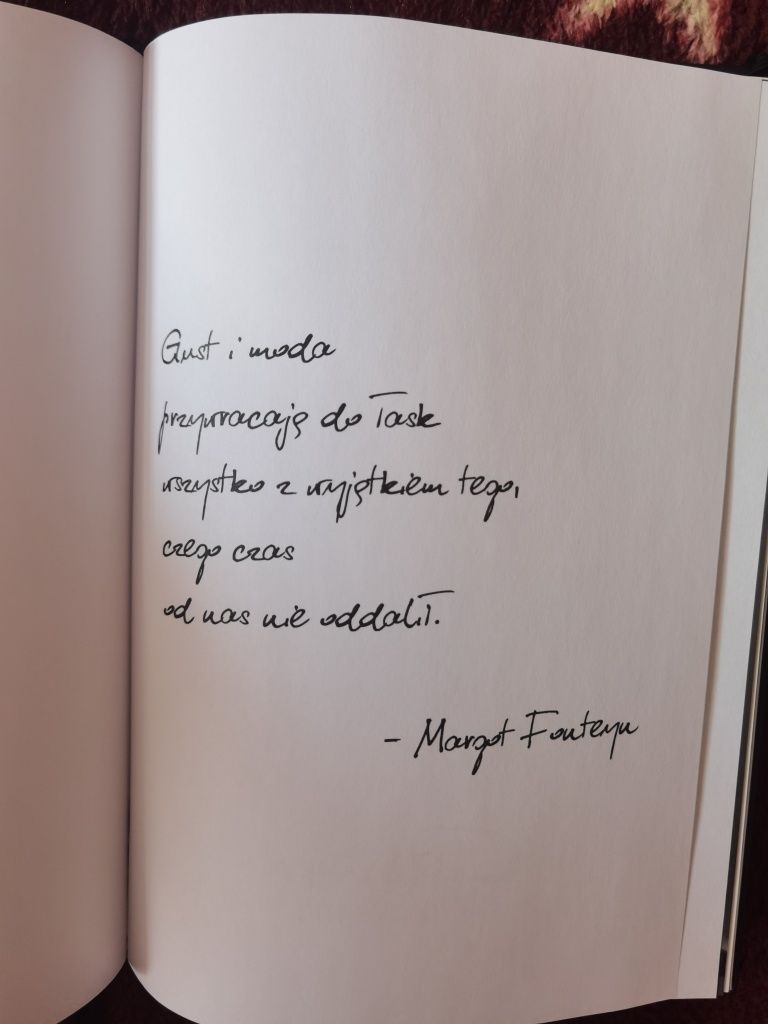 Gust i moda
przywracają do łask
wszystko z wyjątkiem tego,
czego czas
od nas nie oddalił.
- Margot Fonteyn